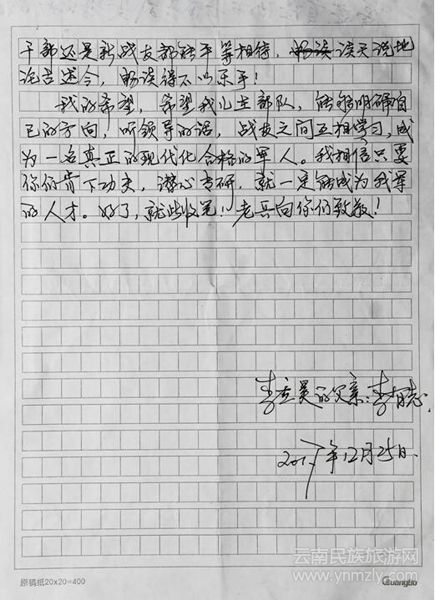 干部还是新战友都能平等相待，谈天说地
论古述今，畅谈得不以乐乎！
我的希望，希望我儿在部队，能够明确自
己的方向，听领导的话，战友之间互相学习，成
为一名真正的现代化合格的军人。我相信只要
你们肯下功夫，潜心专研，就一定能成为我军
的人才。好了，就此收笔！老兵向你们致敬！
李 昊的父亲：李 志
2017年12月25日
原稿纸20x20=400
Guangbo
云南民族旅游网
www.ynmzly.com